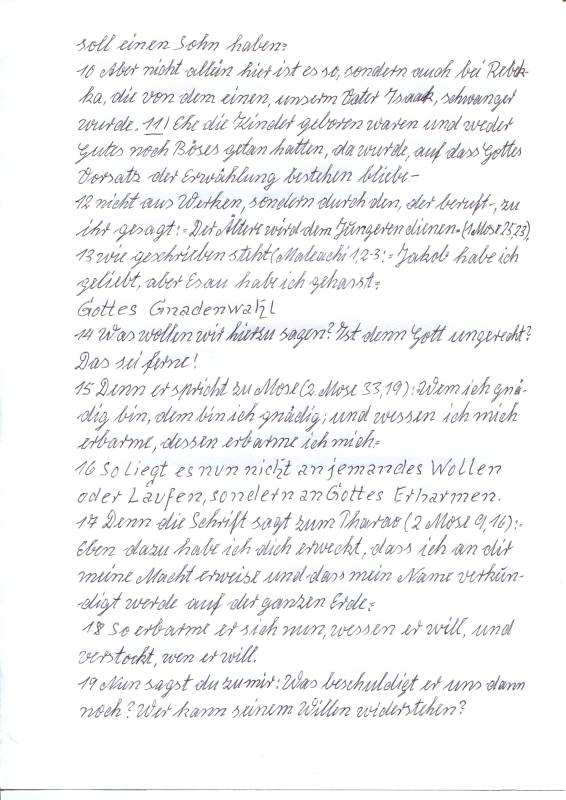 soll einen Sohn haben=
10 Aber nicht allein hier ist es so, sondern auch bei Rebek-
ka, die von dem einen, unserm Vater Isaak, schwanger
wurde. 11) Ehe die Kinder geboren waren und weder
Gutes noch Böses getan hatten, da wurde, auf dass Gottes
Vorsatz der Erwählung bestehen bliebe-
12 nicht aus Werken, sondern durch den, der beruft-, zu
ihr gesagt:=Der Ältere wird dem Jüngeren dienen=(1 Mose 25,23),
13 wie geschrieben steht (Maleachi 1,2-3:=Jakob habe ich
geliebt, aber Esau habe ich gehasst=
Gottes Gnadenwahl
14 Was wollen wir hierzu sagen? Ist denn Gott ungerecht?
Das sei ferne!
15 Denn er spricht zu Mose (2. Mose 33,19):Wem ich gnä-
dig bin, dem bin ich gnädig; und wessen ich mich
erbarme, dessen erbarme ich mich=
16 So liegt es nun nicht an jemandes Wollen
oder Laufen, sondern an Gottes Erbarmen.
17 Denn die Schrift sagt zum Pharao (2 Mose 9,16):=
Eben dazu habe ich dich erweckt, dass ich an dir
meine Macht erweise und dass mein Name verkün-
digt werde auf der ganzen Erde=
18 So erbarme er sich nun, wessen er will, und
verstockt, wen er will.
19 Nun sagst du zu mir: Was beschuldigt er uns dann
noch? Wer kann seinem Willen widerstehen?